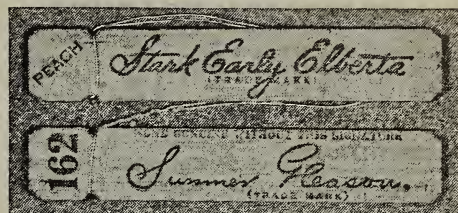 PEACH
Stark Early Elberta
(TRADE MARK)
162
NONE GENUINE WITHOUT THIS SIGNATURE
Summer Gleason.
(TRADE MARK)